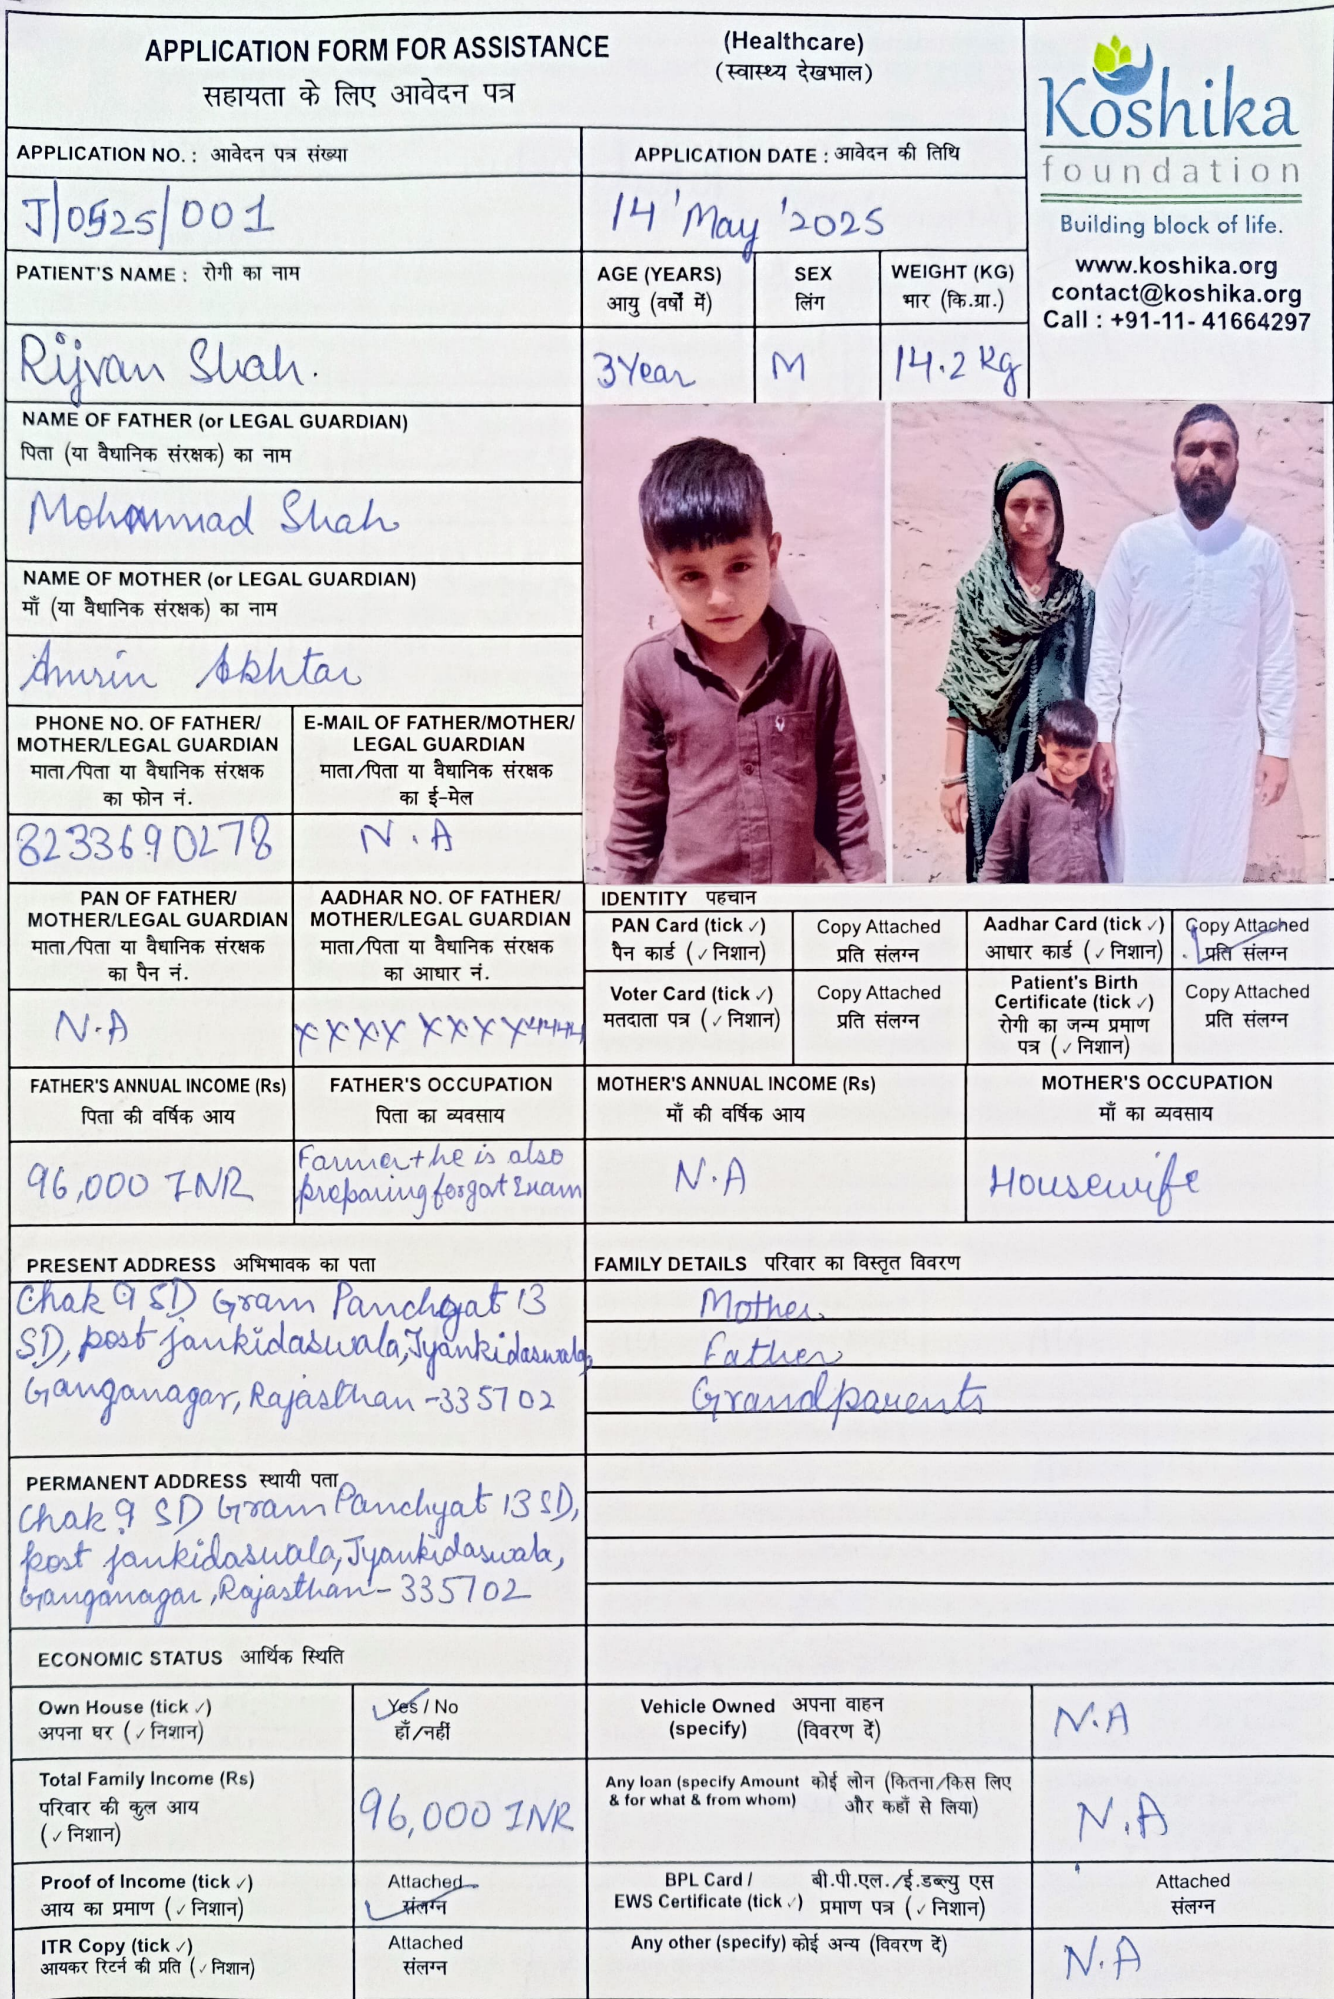 APPLICATION FORM FOR ASSISTANCE
(Healthcare)
सहायता के लिए आवेदन पत्र
(स्वास्थ्य देखभाल)
Koshika
foundation
Building block of life.
www.koshika.org
contact@koshika.org
Call : +91-11- 41664297
APPLICATION NO. : आवेदन पत्र संख्या
APPLICATION DATE : आवेदन की तिथि
J/0525/001
14 'May '2025
PATIENT'S NAME : रोगी का नाम
AGE (YEARS)
आयु (वर्षों में)
SEX
लिंग
WEIGHT (KG)
भार (कि.ग्रा.)
Rijvan Shah.
3 Year
M
14.2 Kg
NAME OF FATHER (or LEGAL GUARDIAN)
पिता (या वैधानिक संरक्षक) का नाम
Mohammad Shah
NAME OF MOTHER (or LEGAL GUARDIAN)
माँ (या वैधानिक संरक्षक) का नाम
Akhtar
PHONE NO. OF FATHER/
MOTHER/LEGAL GUARDIAN
माता/पिता या वैधानिक संरक्षक
का फोन नं.
E-MAIL OF FATHER/MOTHER/
LEGAL GUARDIAN
माता/पिता या वैधानिक संरक्षक
का ई-मेल
8233690278
N.A
PAN OF FATHER/
MOTHER/LEGAL GUARDIAN
माता/पिता या वैधानिक संरक्षक
का पैन नं.
AADHAR NO. OF FATHER/
MOTHER/LEGAL GUARDIAN
माता/पिता या वैधानिक संरक्षक
का आधार नं.
N.A
XXXX XXXX
IDENTITY पहचान
PAN Card (tick ✓)
पैन कार्ड (✓ निशान)
Copy Attached
प्रति संलग्न
Aadhar Card (tick ✓)
आधार कार्ड (✓ निशान)
Copy Attached
प्रति संलग्न
Voter Card (tick ✓)
मतदाता पत्र (✓ निशान)
Copy Attached
प्रति संलग्न
Patient's Birth
Certificate (tick ✓)
रोगी का जन्म प्रमाण
पत्र (✓ निशान)
Copy Attached
प्रति संलग्न
FATHER'S ANNUAL INCOME (Rs)
पिता की वर्षिक आय
FATHER'S OCCUPATION
पिता का व्यवसाय
MOTHER'S ANNUAL INCOME (Rs)
माँ की वर्षिक आय
MOTHER'S OCCUPATION
माँ का व्यवसाय
96,000 INR
Farmer + he is also
preparing for govt Exam
N.A
Housewife
PRESENT ADDRESS अभिभावक का पता
Chak 9 SD Gram Panchyat 13
SD, post jankidaswala, Jyankidaswala,
Ganganagar, Rajasthan - 335702
FAMILY DETAILS परिवार का विस्तृत विवरण
Mother
Father
Grandparents
PERMANENT ADDRESS स्थायी पता
Chak 9 SD Gram Panchyat 13 SD,
post jankidaswala, Jyankidaswala,
Ganganagar, Rajasthan - 335702
ECONOMIC STATUS आर्थिक स्थिति
Own House (tick ✓)
अपना घर (✓ निशान)
Yes / No
हाँ/नहीं
Vehicle Owned अपना वाहन
(specify) (विवरण दें)
N.A
Total Family Income (Rs)
परिवार की कुल आय
(✓ निशान)
96,000 INR
Any loan (specify Amount कोई लोन (कितना/किस लिए
& for what & from whom) और कहाँ से लिया)
N.A
Proof of Income (tick ✓)
आय का प्रमाण (✓ निशान)
Attached
संलग्न
BPL Card / बी.पी.एल./ई.डब्ल्यु एस
EWS Certificate (tick ✓) प्रमाण पत्र (✓ निशान)
Attached
संलग्न
ITR Copy (tick ✓)
आयकर रिटर्न की प्रति (✓ निशान)
Attached
संलग्न
Any other (specify) कोई अन्य (विवरण दें)
N.A